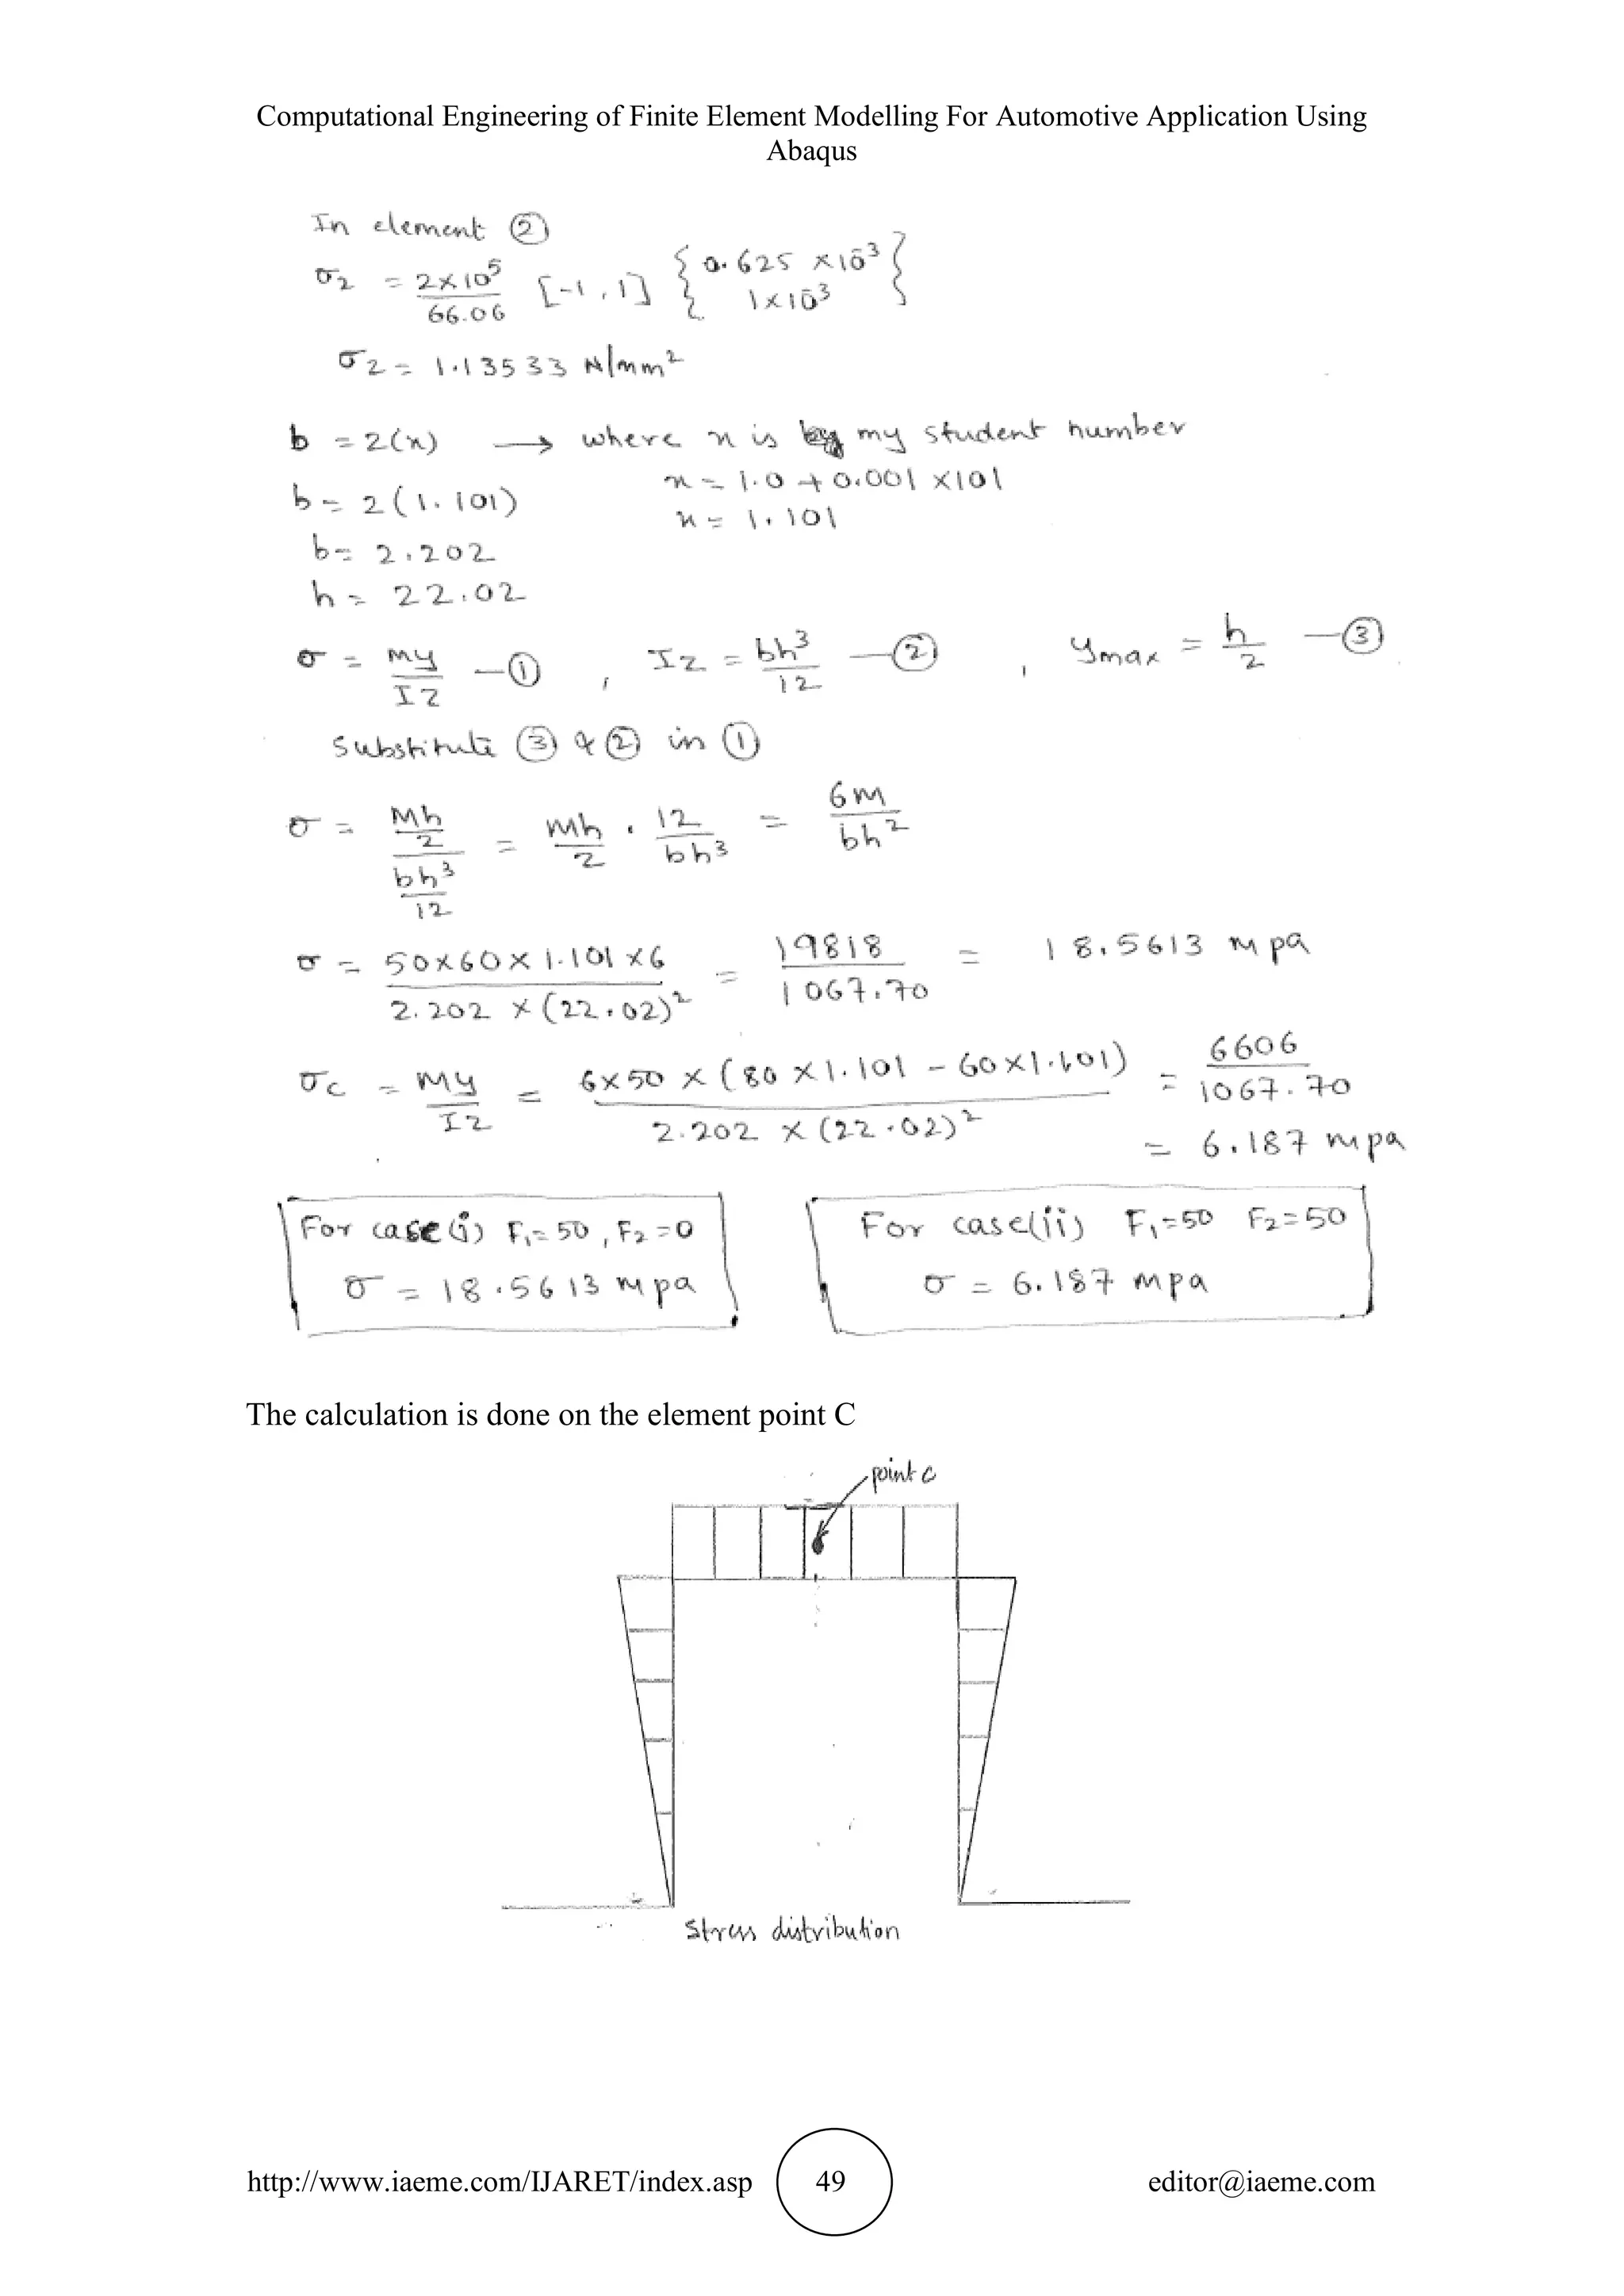 Computational Engineering of Finite Element Modelling For Automotive Application Using
Abaqus
In element ②
σ2 = 2×10^5/66.06 [-1, 1] { 0.625 ×10^-3 1×10^-3 }
σ2 = 1.13533 N/mm²
b = 2(x) → where x is my student number
x = 1.0 + 0.001 ×101
b = 2(1.101)
x = 1.101
b = 2.202
h = 22.02
σ = My/IZ —①, IZ = bh³/12 —②, ymax = h/2 —③
Substitute ③ & ② in ①
σ = (Mh/2)/(bh³/12) = Mh/2 · 12/bh³ = 6M/bh²
σ = 50×60×1.101×6/2.202 ×(22.02)² = 19818/1067.70 = 18.5613 mpa
σc = My/IZ = 6×50 × (80 ×1.101 - 60×1.101)/2.202 × (22.02)² = 6606/1067.70
= 6.187 mpa
For case(i) F1=50, F2=0
σ = 18.5613 mpa
For case(ii) F1=50 F2=50
σ = 6.187 mpa
The calculation is done on the element point C
point c
Stress distribution
http://www.iaeme.com/IJARET/index.asp 49 editor@iaeme.com